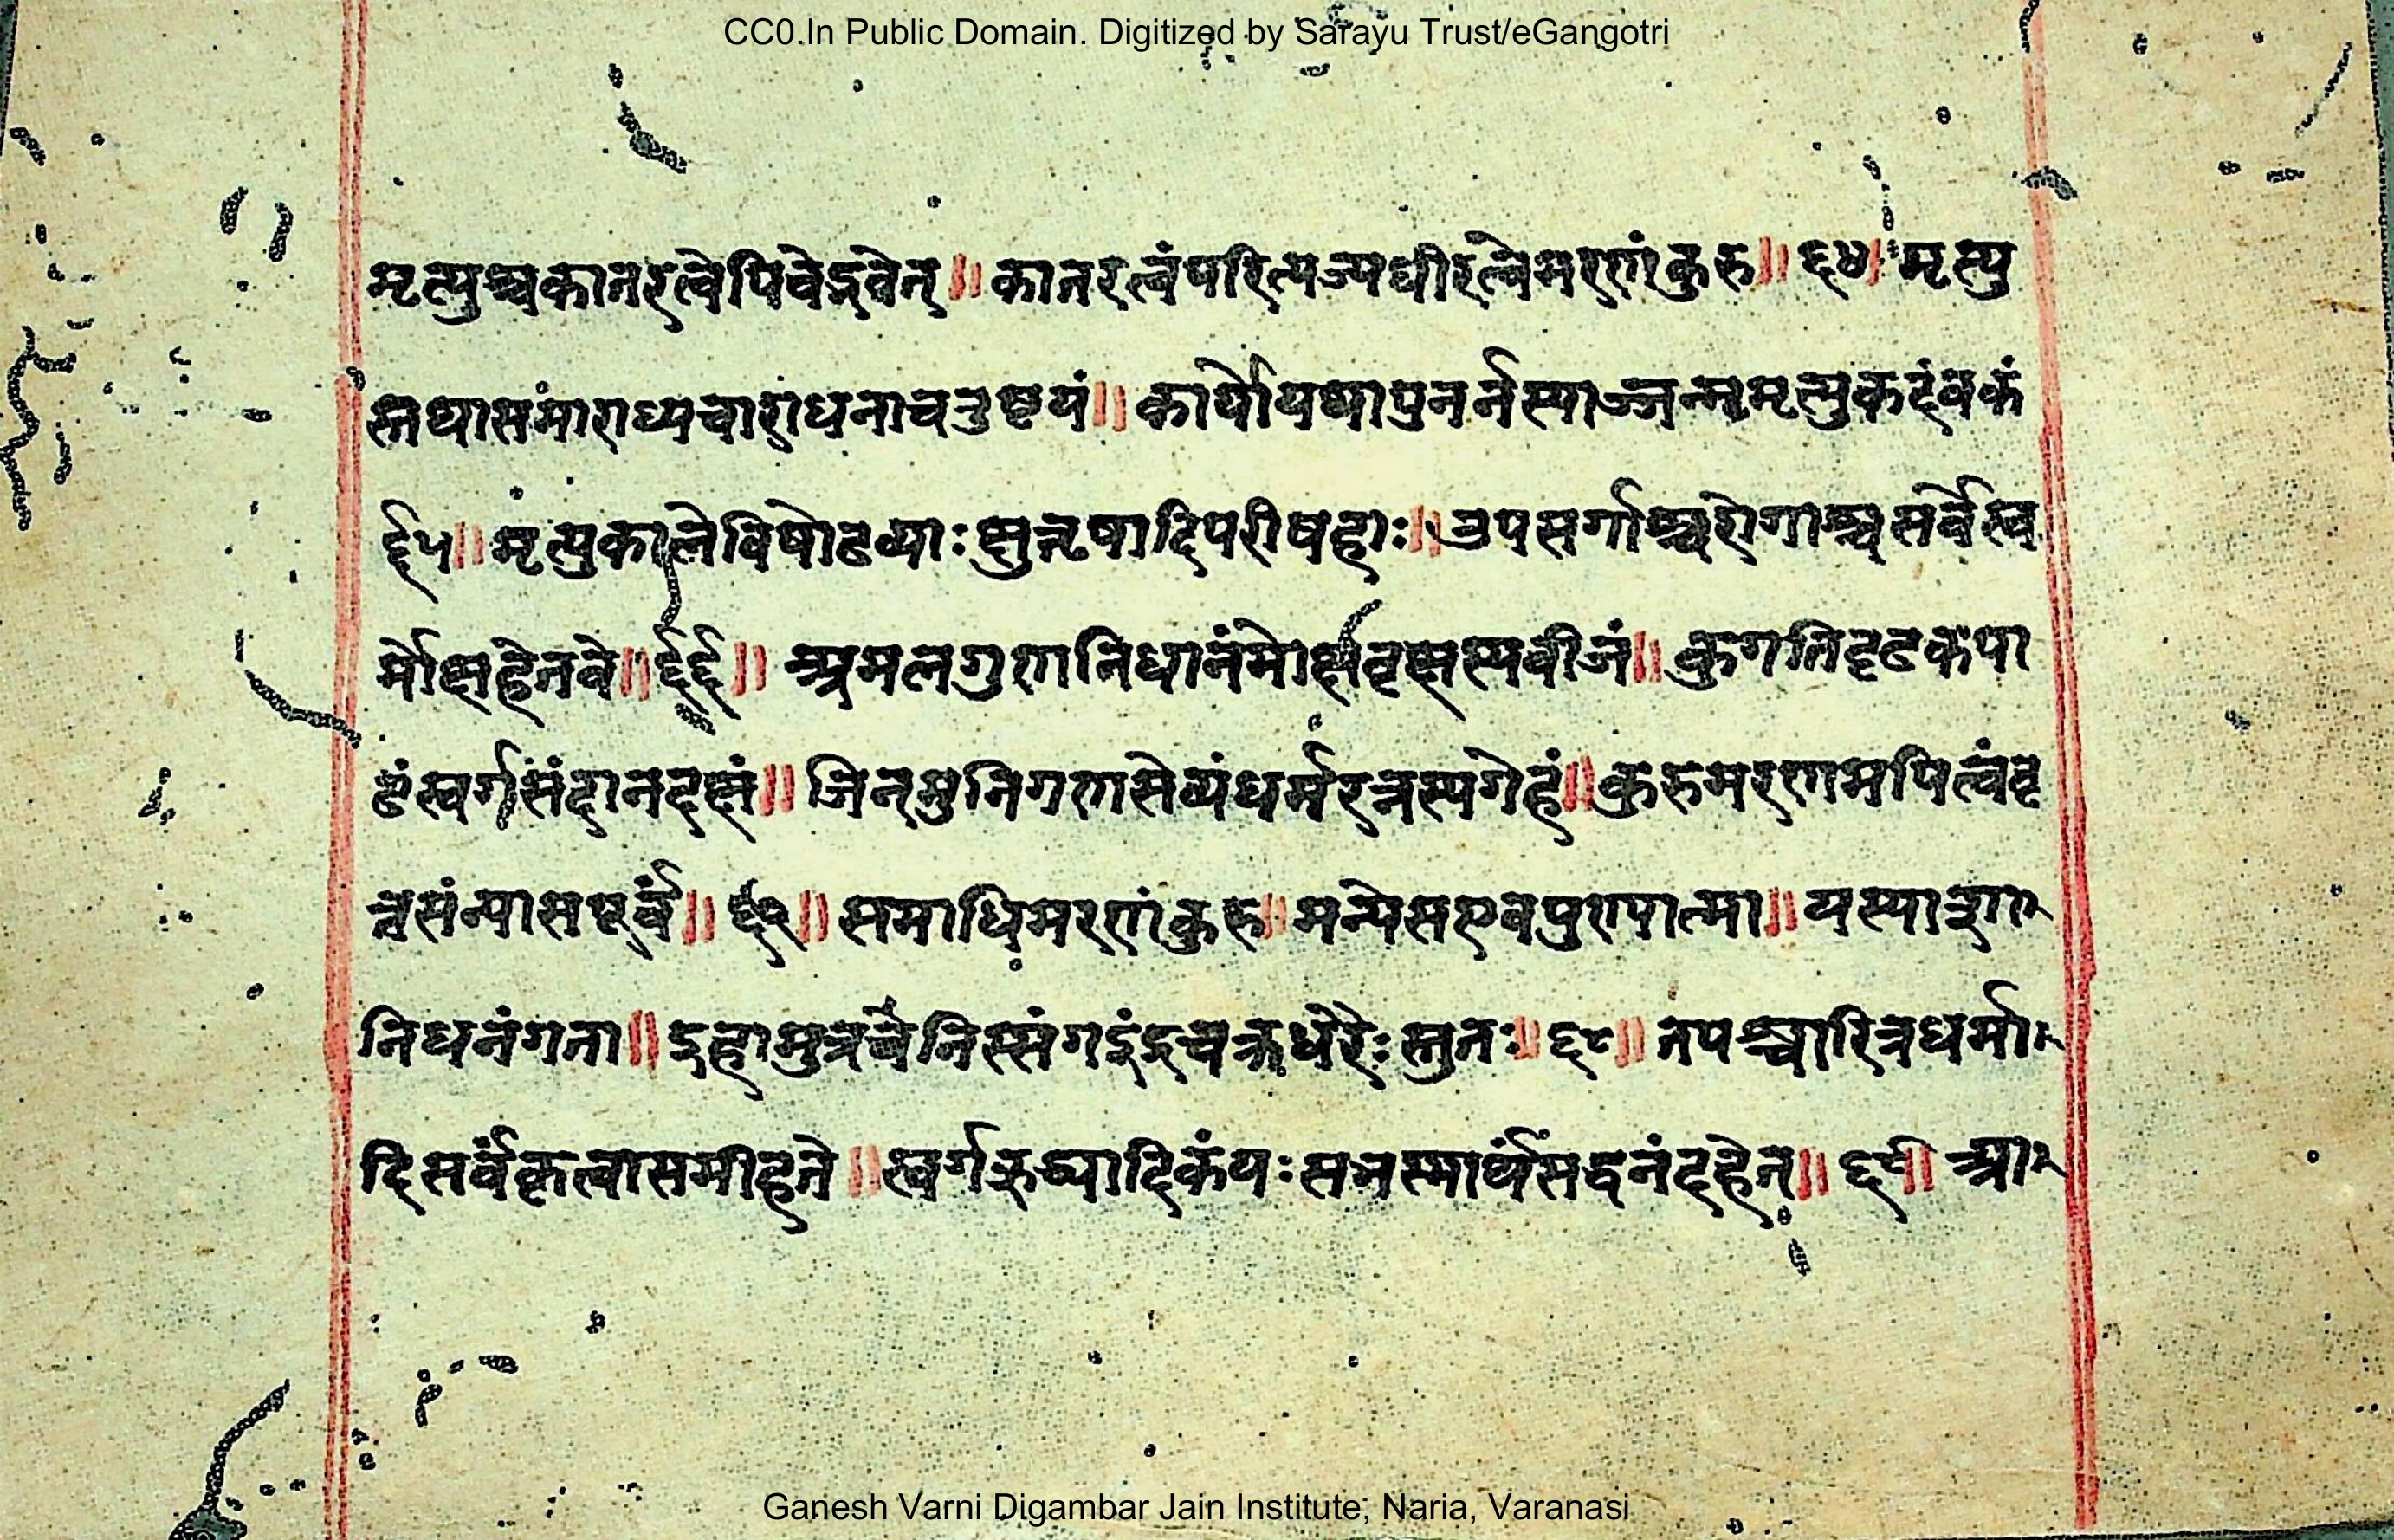 CC0.In Public Domain. Digitized by Sarayu Trust/eGangotri
मृत्युश्चकातरत्वेपिवेद्भवेत्॥ कातरत्वंपरित्यज्यधीरत्वेमरणंकुरु॥ ६४॥ मृत्यु
स्तथासमाराध्यचाराधनाचतुष्टयं॥ कार्योयथापुनर्नस्याज्जन्ममृत्युकदंबकं
६५॥ मृत्युकालेविषोढव्याःक्षुत्तृषादिपरीषहाः॥ उपसर्गाश्चरोगाश्चसर्वेस्व
र्मोक्षहेतवे॥ ६६॥ अमलगुणनिधानंमोक्षवृक्षस्यबीजं॥ कुगतिदृढकपा
टंस्वर्गसंदानदक्षं॥ जिनमुनिगणसेव्यंधर्मरत्नस्यगेहं॥ कुरुमरणमपित्वंवृ
त्तसंन्यासपूर्वं॥ ६७॥ समाधिमरणंकुरु॥ मन्येसएवपुण्यात्मा॥ यस्याशा
निधनंगता॥ इहामुत्रचवेनिस्संगइंद्रचक्रधरैःस्तुतः॥ ६८॥ तपश्चारित्रधर्मा
दिसर्वंकृत्वासमीहते॥ स्वर्गऋद्ध्यादिकंयःसतस्मार्थंसद्वनंदहेत्॥ ६९॥ आ
Ganesh Varni Digambar Jain Institute, Naria, Varanasi